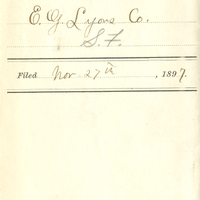 E. G. Lyons Co.
S. F.
Filed Nov. 27th, 1897.